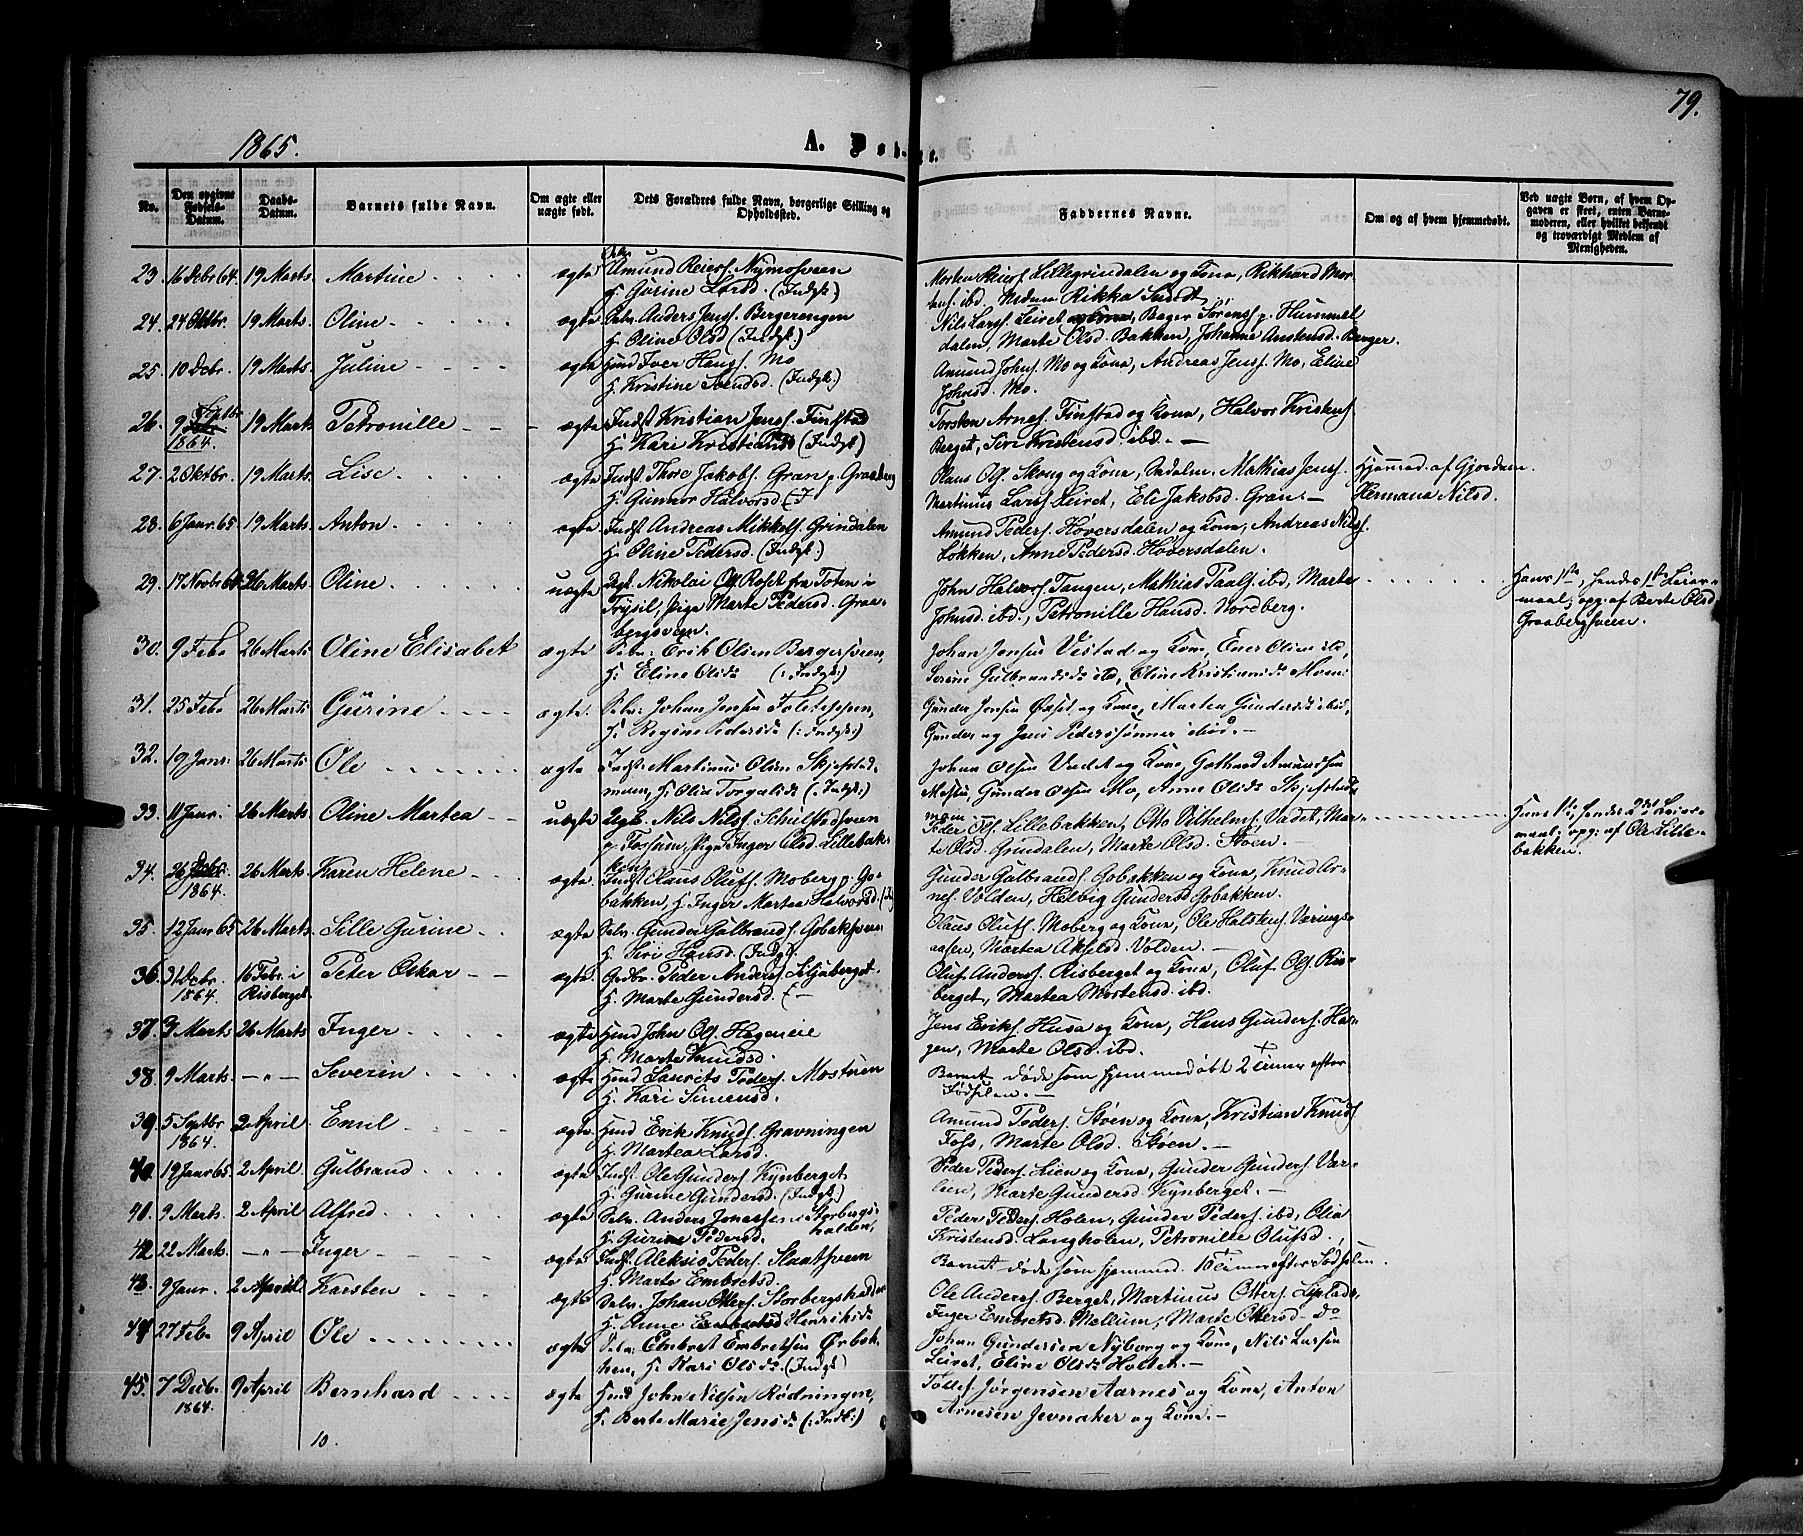 79.
1865.
A. Døbte.
No.
Den opgivne Fødsels-Datum.
Daabs-Datum.
Barnets fulde Navn.
Om ægte eller uægte født.
Dets Forældres fulde Navn, borgerlige Stilling og Opholdssted.
Faddernes Navne.
Om og af hvem hjemmedøbt.
Ved uægte Børn, af hvem Opgaven er skeet, enten Barnemoderen, eller hvilket bekjendt og troværdigt Medlem af Menigheden.
23. 16 Decbr 64. 19 Marts. Martine ægte Amund Reiers. Nymosveen
H. Gurine Larsd. (Indgk.)
Morten Reiers. Lillegrindalen og Kone, Rikhard Mor-
tens. ibd. Madam Rikka Sundt
24. 24 Oktbr. 19 Marts. Oline ægte Selv. Anders Jens. Bergerengen
H. Oline Olsd (Indgk.)
Nils Lars. Leiret, Bager Sørens. p. Hummel
dalen, Marte Olsd. Bakken, Johanne Amtensd. Berger.
25. 10 Dcbr. 19 Marts. Juline ægte Hmd Iver Hans. Mo
H. Kristine Svendsd. (Indgk.)
Amund Johns. Mo og Kone, Andreas Jens. Mo, Eline
Johnsd. Mo.
26. 9 Septbr 1864. 19 Marts Petronille ægte Indst Kristian Jens. Finstad
H. Kari Kristiansd (Indgk)
Torsten Arnes. Finstad og Kone, Halvor Kristens.
Berget, Siri Kristensd. ibd. —
27. 2 Oktbr. 19 Marts. Lise ægte Indst. Thore Jakobs. Gran p. Graaberg
H. Gunnor Halvorsd. (—
Olaus Ols. Skoug og Kone, Mathias Jens.
Martinus Lars. Leiret, Eli Jakobsd. Gran. —
Hjemmed. af Gjordem.
Hermana Nilsd.
28. 6 Janr. 65 19 Marts. Anton ægte Indst Andreas Mikkels. Grindalen
H. Oline Pedersd. (Indgk.)
Amund Peders. Hoversdalen og Kone, Andreas Nils.
Løkken, Anne Pedersd. Hoversdalen.
29. 17 Novbr 64 26 Marts. Oline uægte Ugk. Nikolai Ols. Roset fra Toten i
Trysil, Pige Marte Pedersd. Graa-
bergsveen.
John Halvors. Tangen, Mathias Paals. ibd, Marte
Johnsd. ibd., Petronille Hansd. Nordberg.
Hans 1ste, hendes 1ste Leier-
maal; opg. af Berte Olsd
Graabergsveen.
30. 9 Febr 26 Marts Oline Elisabet ægte Selv: Erik Olsen Bergersveen,
H. Eline Olsd: (:Indgk:)
Johan Jensen Vestad og Kone, Ener Olsen ibd,
Serine Gulbrandsd: ibd, Oline Kristiansd: Moen.
31. 25 Febr 26 Marts Gurine ægte. Selv: Johan Jensen
H. Regine Pedersd: (:Indgk:)
Gunder Jensen Øset og Kone, Martea Gundersd: ibid,
Gunder og Jens Pederssønner ibid. —
32. 19 Janr. 26 Marts Ole ægte Indst: Martinus Olsen Skjefstad-
moen, H. Olia Torgalsd: (:Indgk:)
Johan Olsen Vadet og Kone, Gothard Amundsen
Gunder Olsen Mo, Anne Olsd: Skjefstad-
moen.
33. 11 Janr. 26 Marts. Oline Martea uægte Ugk. Nils Nils. Schulstdsveen
p. Forssum, Pige Inger Olsd. Lillebak-
ken
Peder Ols. Lillebakken, Otto Vilhelms. Vadet, Mar-
te Olsd. Grindalen, Marte Olsd. Støen. —
Hans 1ste, hendes 2det Leier-
maal; opg: af Ole Lille-
bakken.
34. 26 Decbr 1864. 26 Marts. Karen Helene ægte Indst Olaus Olufs. Moberg p. Go-
bakken, H. Inger Martea Halvorsd. (I)
Gunder Gulbrands. Gobakken og Kone, Knud Ar-
nes. Volden, Helvig Gundersd Gobakken.
35. 12 Janr 65 26 Marts. Sille Gurine ægte Selv. Gunder Gulbrands. Gobaksveen
H. Siri Hansd. (Indgk.)
Olaus Olufs. Moberg og Kone, Ole Halstens. Værings-
aasen, Martea Akselsd. Volden. —
36. 31 Dcbr. 1864. 16 Febr. i Risberget. Peter Oskar ægte Grdbr. Peder Anders. Kiljaberget.
H. Marte Gundersd. (—
Oluf Anders. Risberget og Kone, Oluf Ols. Ris-
berget, Martea Mortensd. ibd.
37. 3 Marts 26 Marts Inger ægte Hmd John Ols. Hageneie
H. Marte Knudsd.
Jens Eriks. Husa og Kone, Hans Gunders. Ha-
gen, Marte Olsd. ibd.
38. 9 Marts. —"— Severin ægte Hmd Laurits Peders. Mostuen
H. Kari Simensd.
Barnet døde som hjemmedøbt 2 Timer efter
Fødselen. —
39. 5 Septbr 1864. 2 April Emil ægte Hmd Erik Knuds. Gravningen
H. Martea Larsd.
Amund Peders. Støen og Kone, Kristian Knuds.
Foss, Marte Olsd. Støen. —
40. 19 Janr 65. 2 April Gulbrand ægte Indst. Ole Gunders. Kynberget.
H. Gurine Gundersd. (Indgk.)
Peder Peders. Lien og Kone, Gunder Gunders. Var-
lien, Marte Gundersd. Kynberget. —
41. 9 Marts. 2 April Alfred ægte Selv. Anders Jonassen Storbergs-
halden,
H. Gurine Pedersd.
Peder Peders. Holen, Gunder Peders. ibd, Olia
Kristensd. Langholen, Petronille Olufsd.
42 22 Marts. —"— Inger ægte Indst. Aleksis Peders. Slaatsveen
H. Marte Embretsd.
Barnet døde som hjemmed. 10 Timer efter Fødselen.
43. 9 Janr. 2 April Karsten ægte Selv. Johan Otters. Storbergshalden
H. Anne Henriksd:
Ole Anders. Berget, Martinus Otters.
Inger Embretsd. Mellum, Marte Ottersd. do
44 27 Febr 9 April Ole ægte Selv: Embret Embretsen Ørbek-
ken, H. Kari Olsd: (Indgk)
Johan Gundersen Nyborg og Kone, Nils Larsen
Leiret, Eline Olsd: Holtet. —
45. 7 Decbr. 1864. 9 April Bernhard ægte Hmd John Nilsen Rødningen,
H. Berte Marie Jensd: (:Indgk:)
Tollef Jørgensen Aarnes og Kone, Anton
Arnesen Jevnaker og Kone. —
10.